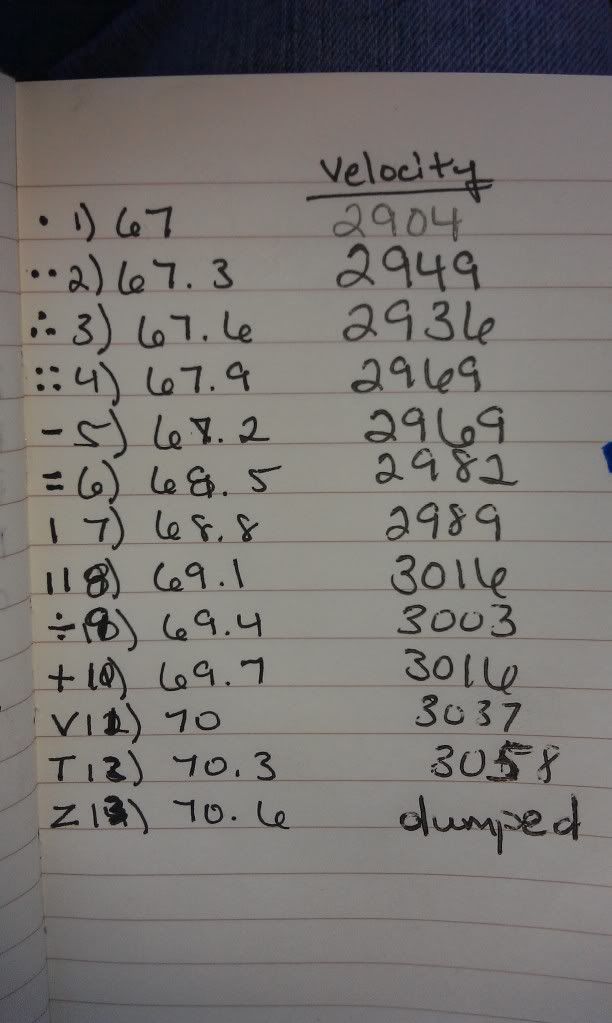 Velocity
• 1) 67 2904
•• 2) 67.3 2949
∴ 3) 67.6 2936
:: 4) 67.9 2969
- 5) 68.2 2969
= 6) 68.5 2982
| 7) 68.8 2989
|| 8) 69.1 3016
÷ 9) 69.4 3003
+ 10) 69.7 3016
V 11) 70 3037
T 12) 70.3 3058
Z 13) 70.6 dumped